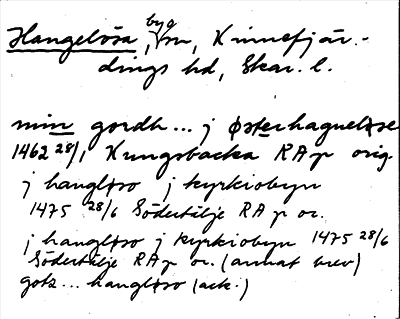 Hangelösa, byg
Vm, Kinnefjär-
dings hd, Skar. l.
min gordh... j østerhagueløse
1462 28/1 Kungsbacka RAp orig.
j hangløso j kyrkiobyn
1475 28/6 Södertälje RAp or.
j hangløso j kyrkiobyn 1475 28/6
Södertälje RAp or. (annat brev)
gotz... hangløso (ack.)